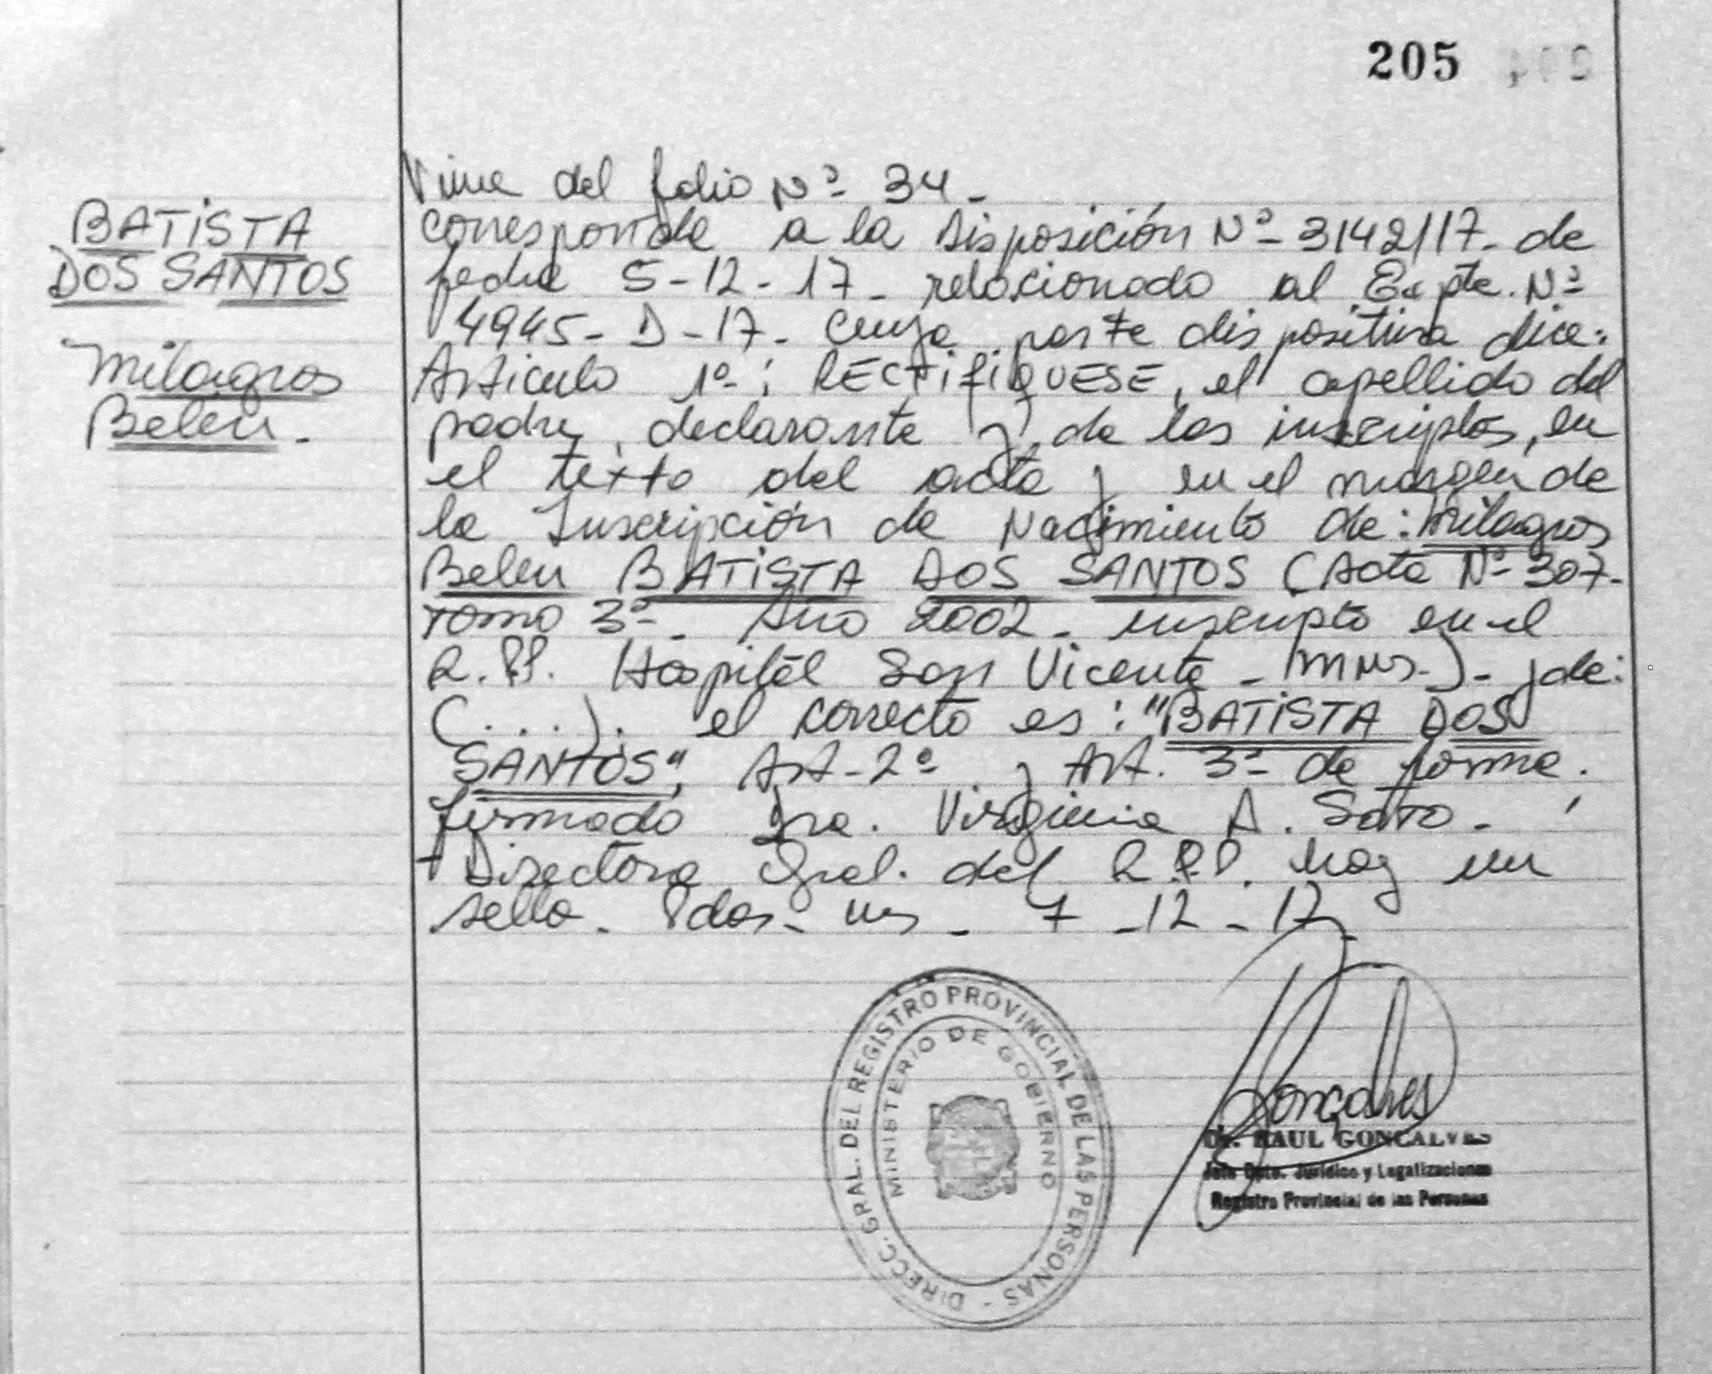 205 204
BATISTA
DOS SANTOS
Milagros
Belén.
Viene del folio Nº 34.
corresponde a la Disposición Nº 3142/17. de
fecha 5-12-17. relacionado al Expte. Nº
4945-D-17. cuya parte dispositiva dice:
Articulo 1º: RECTIFIQUESE, el apellido del
padre, declarante y de los inscriptos, en
el texto del acta y en el margen de
la Inscripción de Nacimiento de: Milagros
Belen BATISTA DOS SANTOS (Acta Nº 307-
Tomo 3º. Año 2002. inscripto en el
R.P.P. Hospital San Vicente - Mns.). y de:
(....). el correcto es: "BATISTA DOS
SANTOS", Art-2º y Art. 3º de forma.
firmado Dra. Virginia A. Soto.
Directora Gral. del R.P.P. hay un
sello. Pdas. Mns. 7-12-17.
DIRECC. GRAL. DEL REGISTRO PROVINCIAL DE LAS PERSONAS -
MINISTERIO DE GOBIERNO
Gonçalves
Dr. RAUL GONCALVES
Jefe Dpto. Jurídico y Legalizaciones
Registro Provincial de las Personas